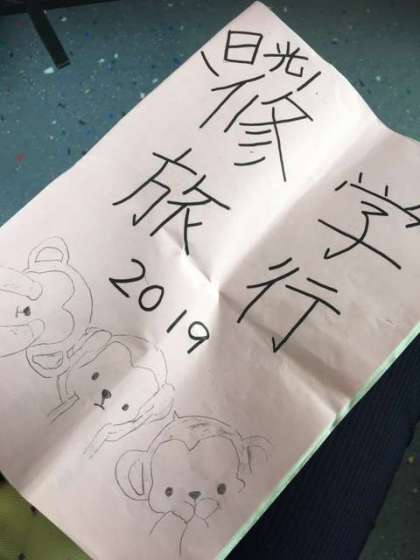 日光
修学
旅行
2019